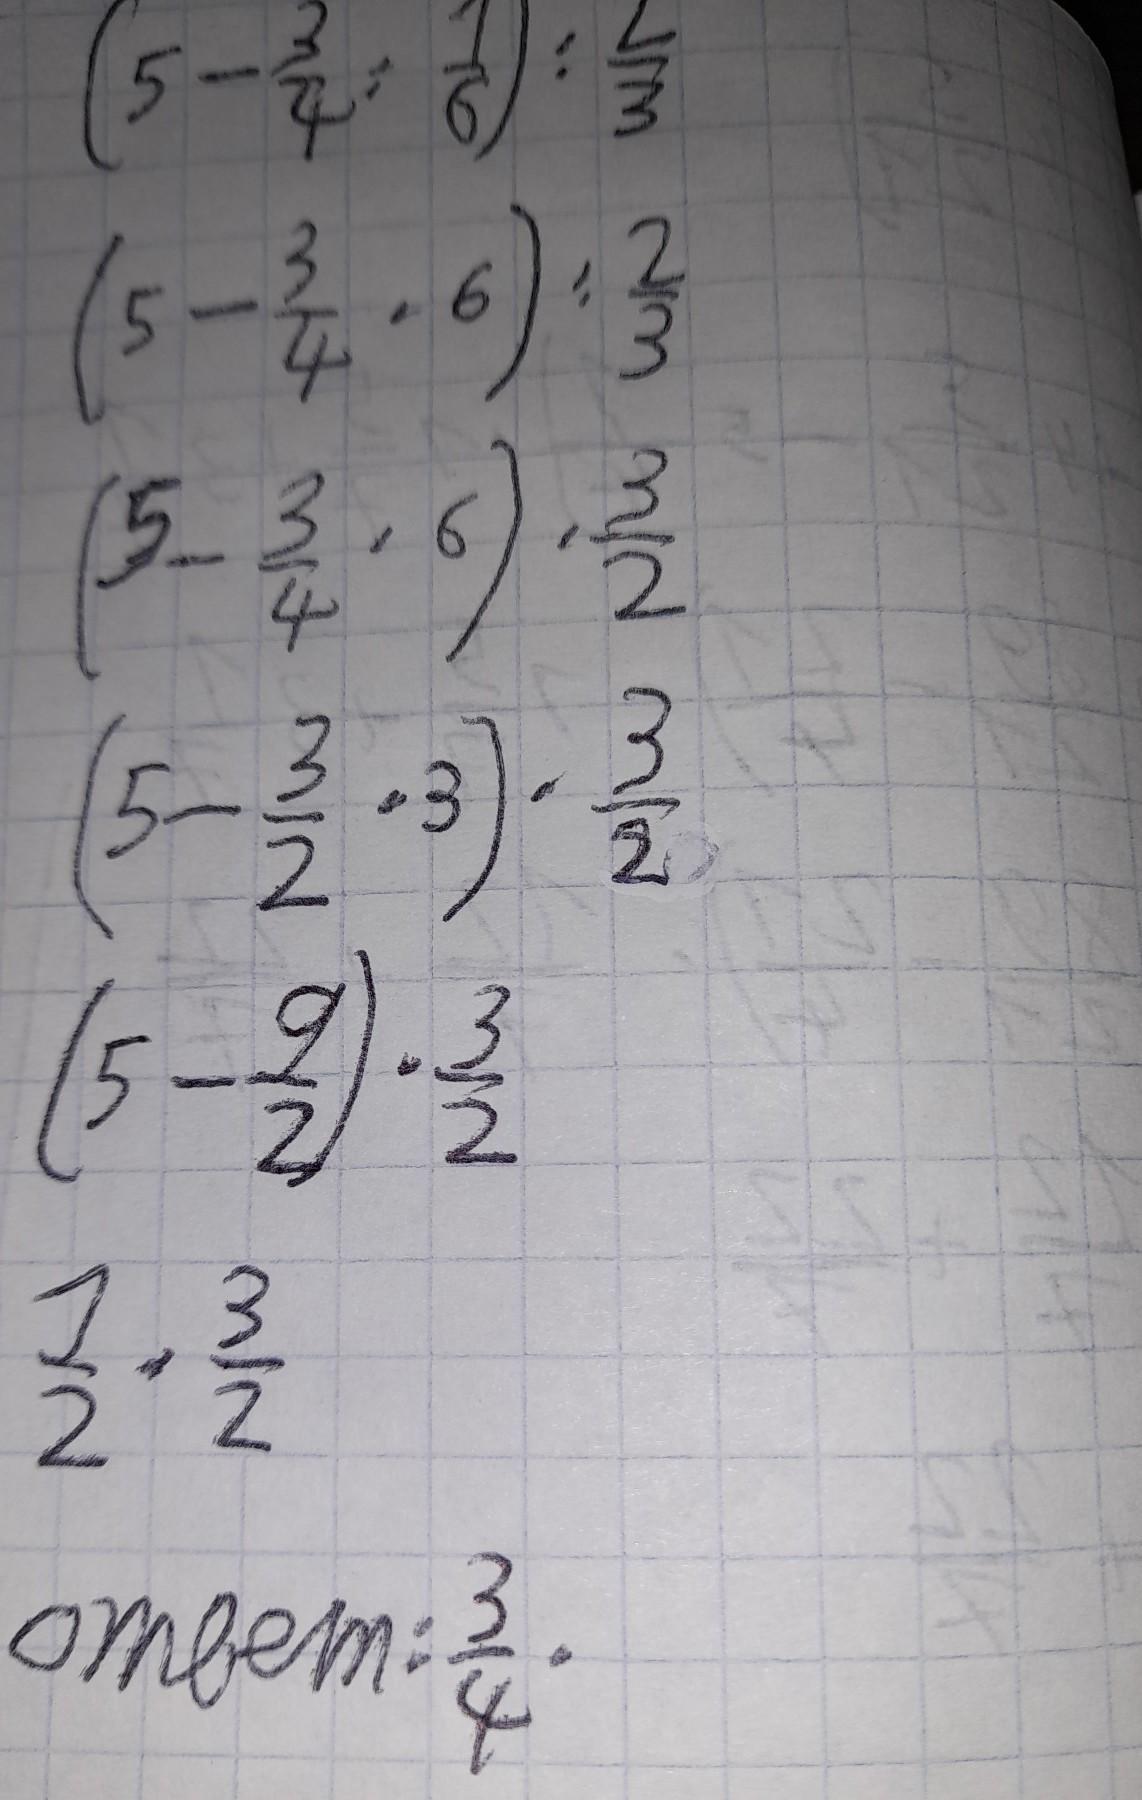 (5 - 3/4 : 1/6) : 2/3
(5 - 3/4 · 6) : 2/3
(5 - 3/4 · 6) · 3/2
(5 - 3/2 · 3) · 3/2
(5 - 9/2) · 3/2
1/2 · 3/2
ответ: 3/4.